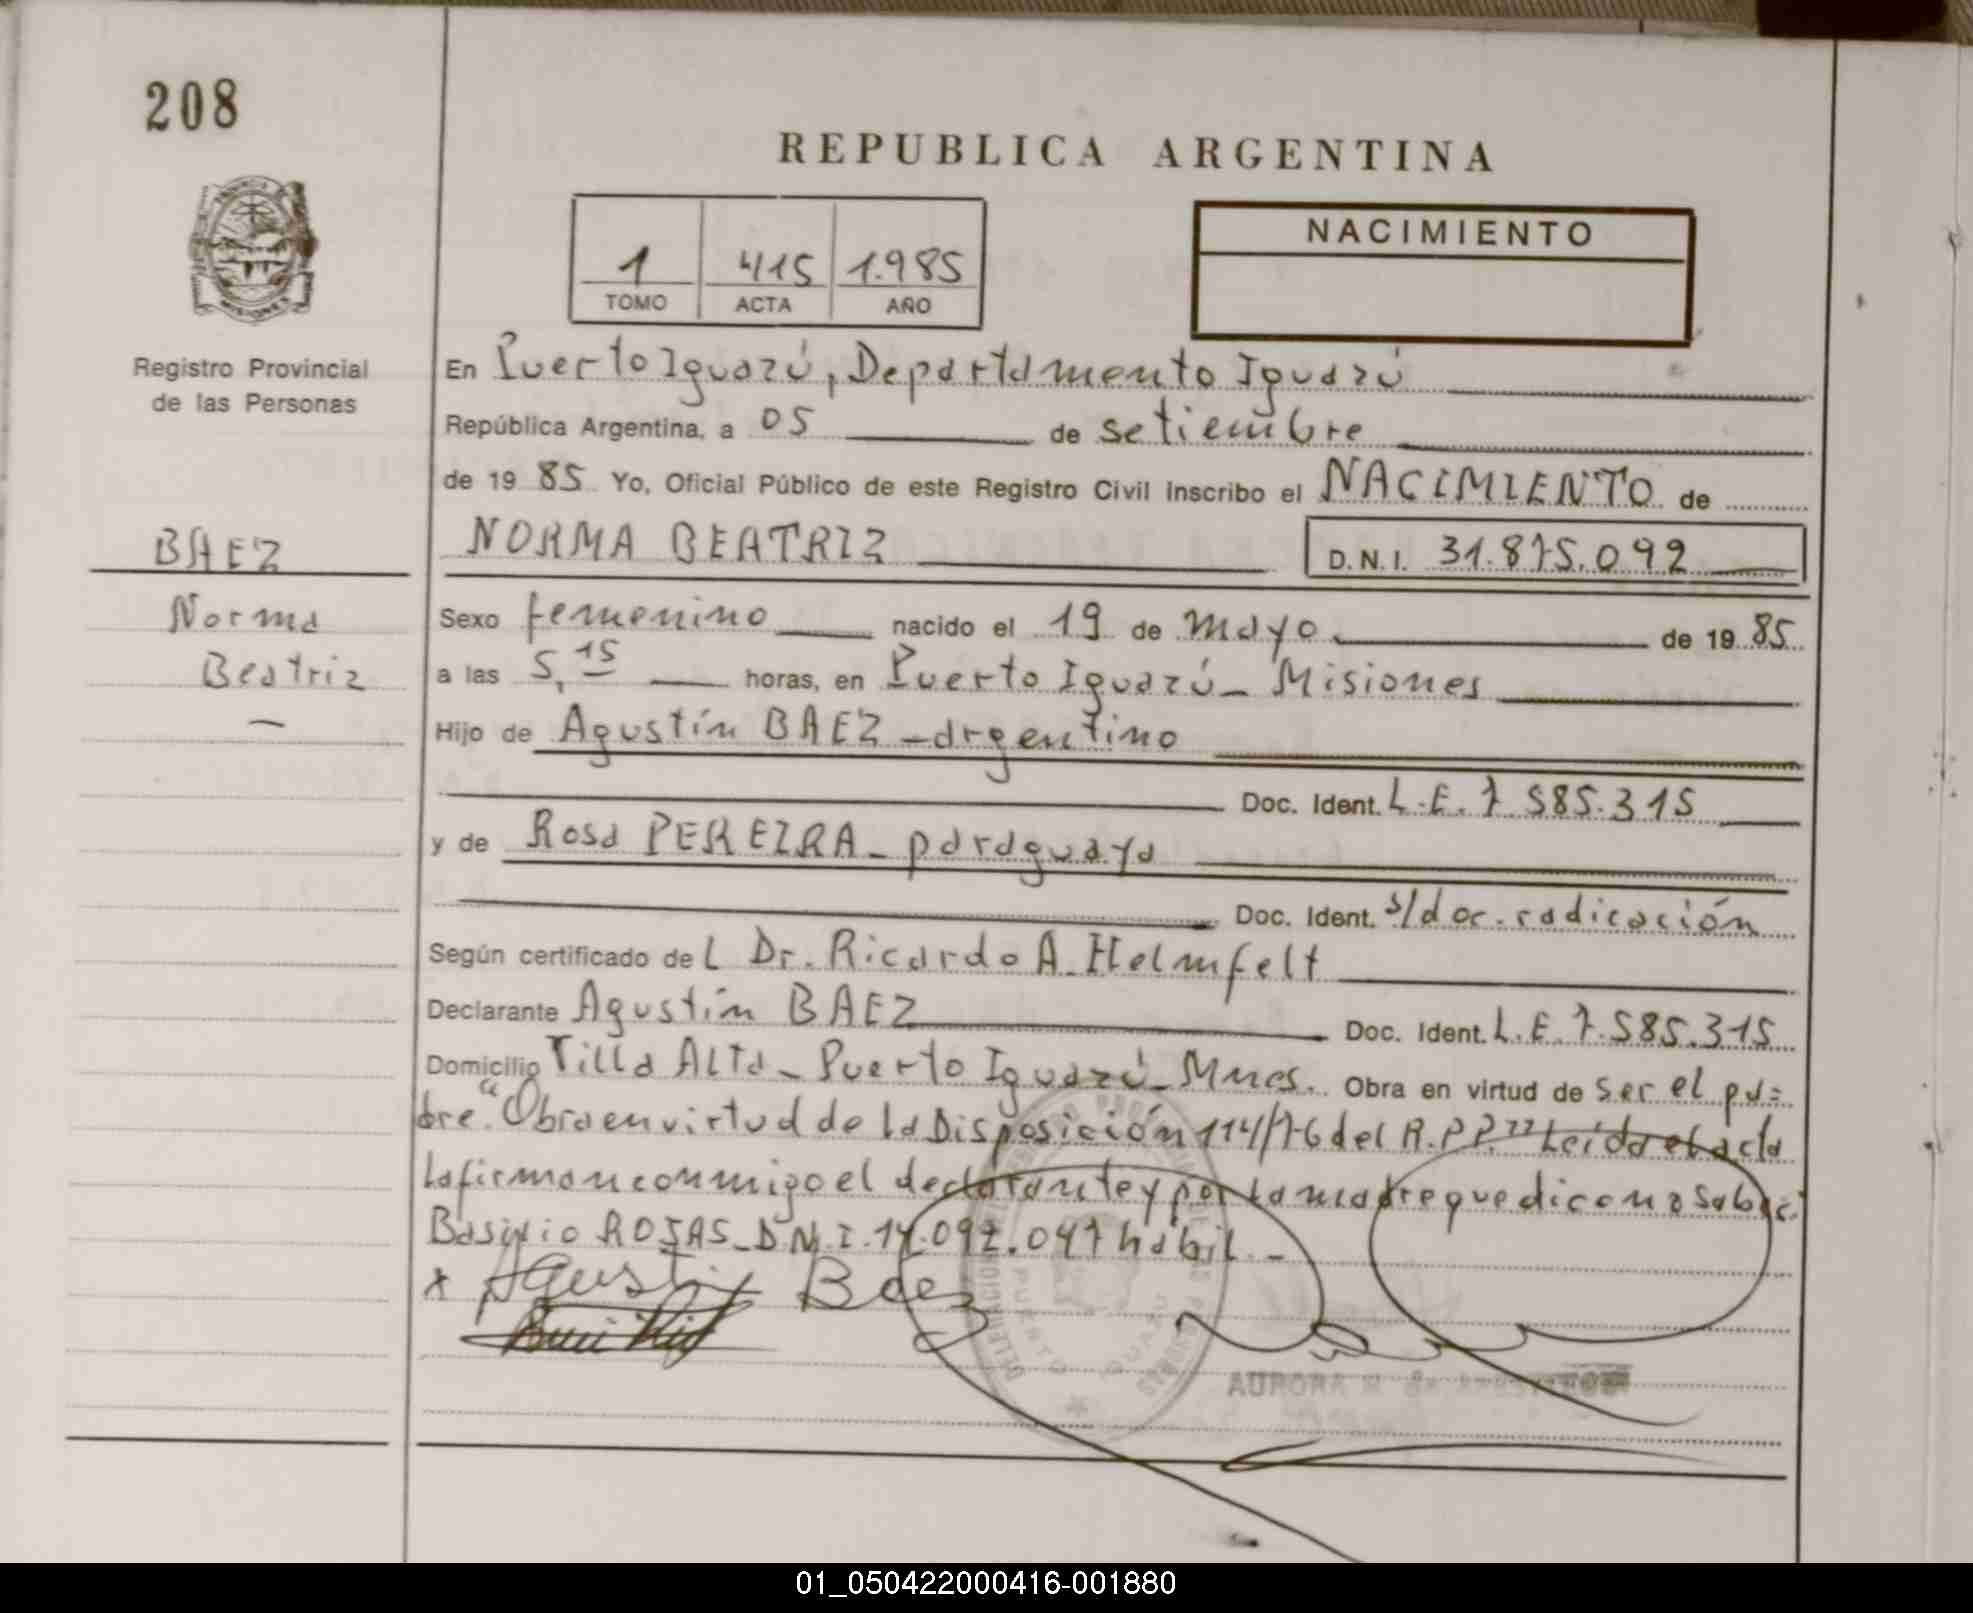 208
REPUBLICA ARGENTINA
NACIMIENTO
1 415 1.985
TOMO ACTA AÑO
MISIONES
Registro Provincial
de las Personas
En Puerto Iguazú, Departamento Iguazú
República Argentina, a 05 de setiembre
de 19 85 Yo, Oficial Público de este Registro Civil inscribo el NACIMIENTO de
BAEZ
Norma
Beatriz
NORMA BEATRIZ D.N.I. 31.875.092
Sexo femenino nacido el 19 de mayo de 19 85
a las 5,15 horas, en Puerto Iguazú - Misiones
Hijo de Agustín BAEZ - argentino
Doc. Ident. L.E. 7.585.315
y de Rosa PEREIRA - paraguaya
Doc. Ident. s/doc. radicación
Según certificado de L Dr. Ricardo A. Helmfelt
Declarante Agustín BAEZ Doc. Ident. L.E. 7.585.315
Domicilio Villa Alta - Puerto Iguazú - Mnes. Obra en virtud de ser el pa=
dre. "Obra en virtud de la Disposición 114/76 del R.P.P." Leída el acta
la firman conmigo el declarante y por la madre que dice no saber:
Basilio ROJAS - D.N.I. 14.092.047 hábil. -
x Agustin Baez
PUERTO IGUAZU
AURORA
01_050422000416-001880